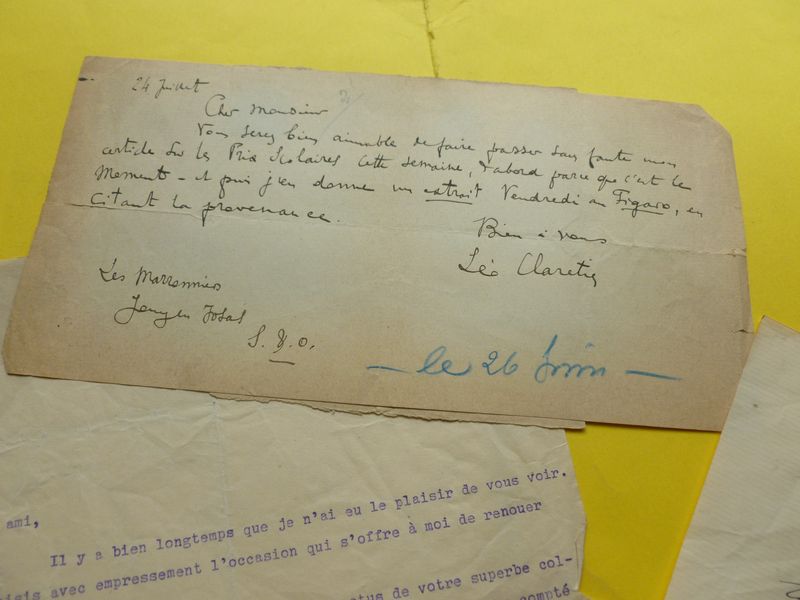 24 Juillet
Cher Monsieur
Vous serez bien aimable de faire passer sans faute mon
article sur les Prix Scolaires cette semaine, d'abord parce que c'est le
moment - et puis j'en donne un extrait Vendredi au Figaro, en
citant la provenance.
Bien à vous
Léo Claretie
Les Marronniers
Jouy en Josas
S. & O.
- le 26 juin -
ami,
Il y a bien longtemps que je n'ai eu le plaisir de vous voir.
isis avec empressement l'occasion qui s'offre à moi de renouer
ctus de votre superbe col-
compté